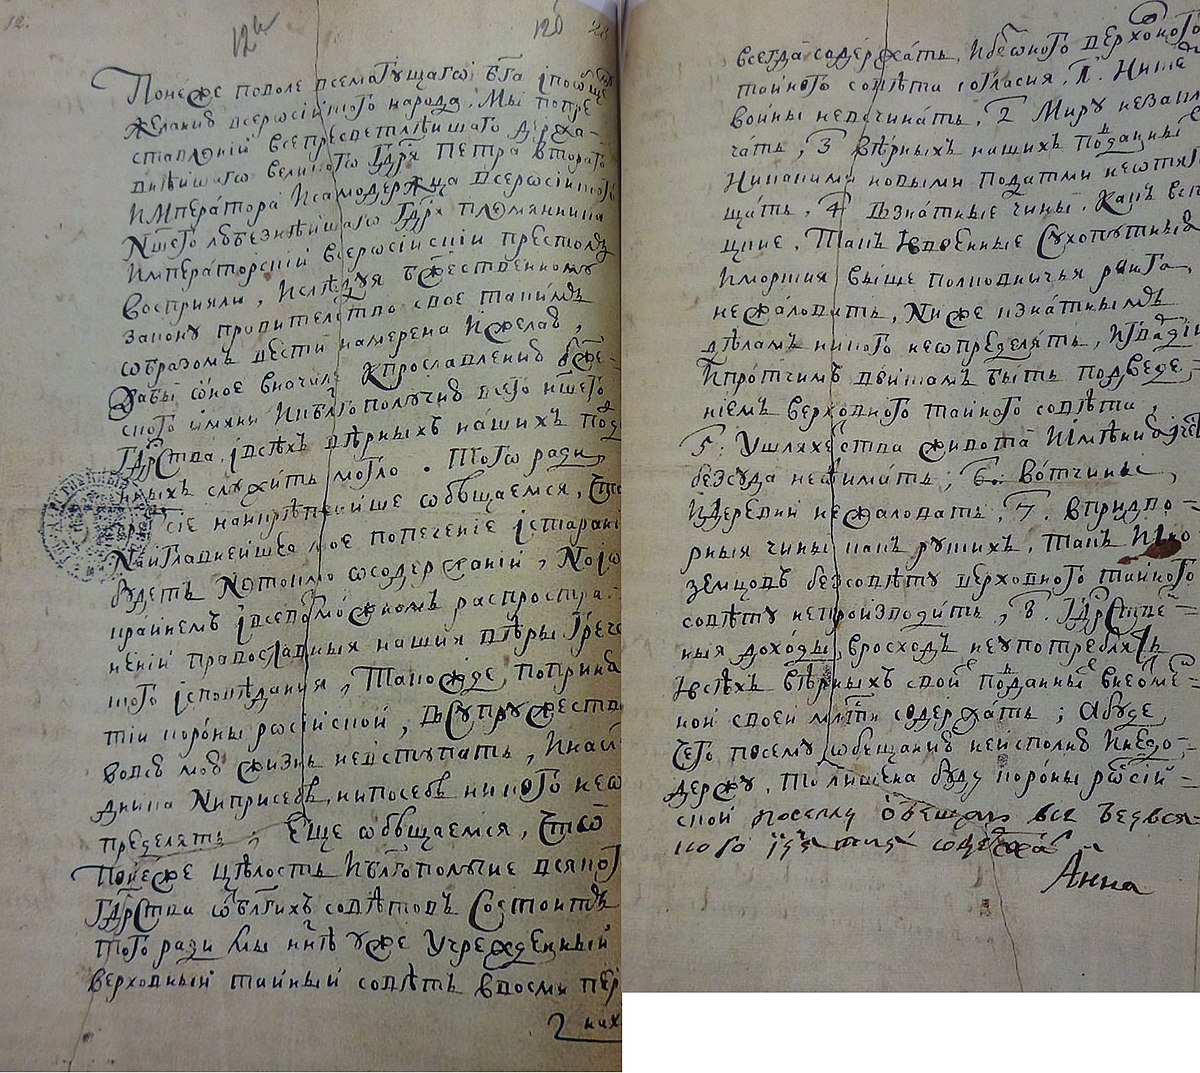 12.
12а
12б
Понеже поволе всемогущаго бга і пообще
желанию всеросійского народа. Мы попре
ставлении всепресветлѣйшаго держа-
внѣйшаго великого Гдря Петра втораго
Императора і самодержца всеросійского
Ншего любезнѣйшаго Гдря племянника
Императорский всеросійскии престолъ
восприяли, и слѣдуя бжественному
закону правителство свое такимъ
образомъ вести намерена и желаю,
дабы оное вначале к прославлению бже-
ского имяни и къ блгополучию всего ншего
Гдрства, і всѣхъ вѣрныхъ нашихъ под
нныхъ служить могло. Того ради,
чрезъ сие наикрѣпчайше обѣщаемся, что
Наиглавнейшее мое попечение і старани
будетъ не токмо о содержании, но і о
крайнемъ і всевозможномъ распростра-
нении православныя нашия вѣры грече
ского исповѣдания, такожде, по приня
тии короны росийской, в супружество
во всю мою жизнь не вступать, и насл
дника ни при себѣ, ни по себѣ никого не о
пределять, Еще обѣщаемся, что
понеже цѣлость и блгополучие всякого
гдрства от благихъ совѣтовъ состоитъ
того ради мы ннѣ уже учрежденный
верховный тайный совѣтъ в восми пер
2 нах
всегда содержать, и без оного верховного
тайного совѣта согласия. 1. Ни с кем
войны не всчинать, 2 Миру не заклю
чать, 3 вѣрныхъ нашихъ подданных
никакими новыми податми не отяг
щать, 4 В знатные чины, какъ в ст
цкие, такъ и в военные сухопутныя
и морския выше полковничья ранга
не жаловать, ниже к знатнымъ
дѣламъ никого не определять, и гвардии
и протчимъ войскамъ быть под веде-
ниемъ верховного тайного совѣта,
5: У шляхетства живота и имѣния и чести
без суда не отимать, 6. вотчины
и деревни не жаловать, 7. в придво-
рныя чины какъ руских, такъ и ино
земцовъ без совѣту верховного тайного
совѣту не производить, 8. Гдрственн-
ныя доходы в росходъ не употреблять
и всѣхъ вѣрныхъ своих подданных в неотме-
нной своей млсти содержать; а буде
чего по сему обещанию не исполню и не до-
держу, то лишена буду короны росий-
ской по сему обещаю все безо вся-
кого изятия содержать
Анна